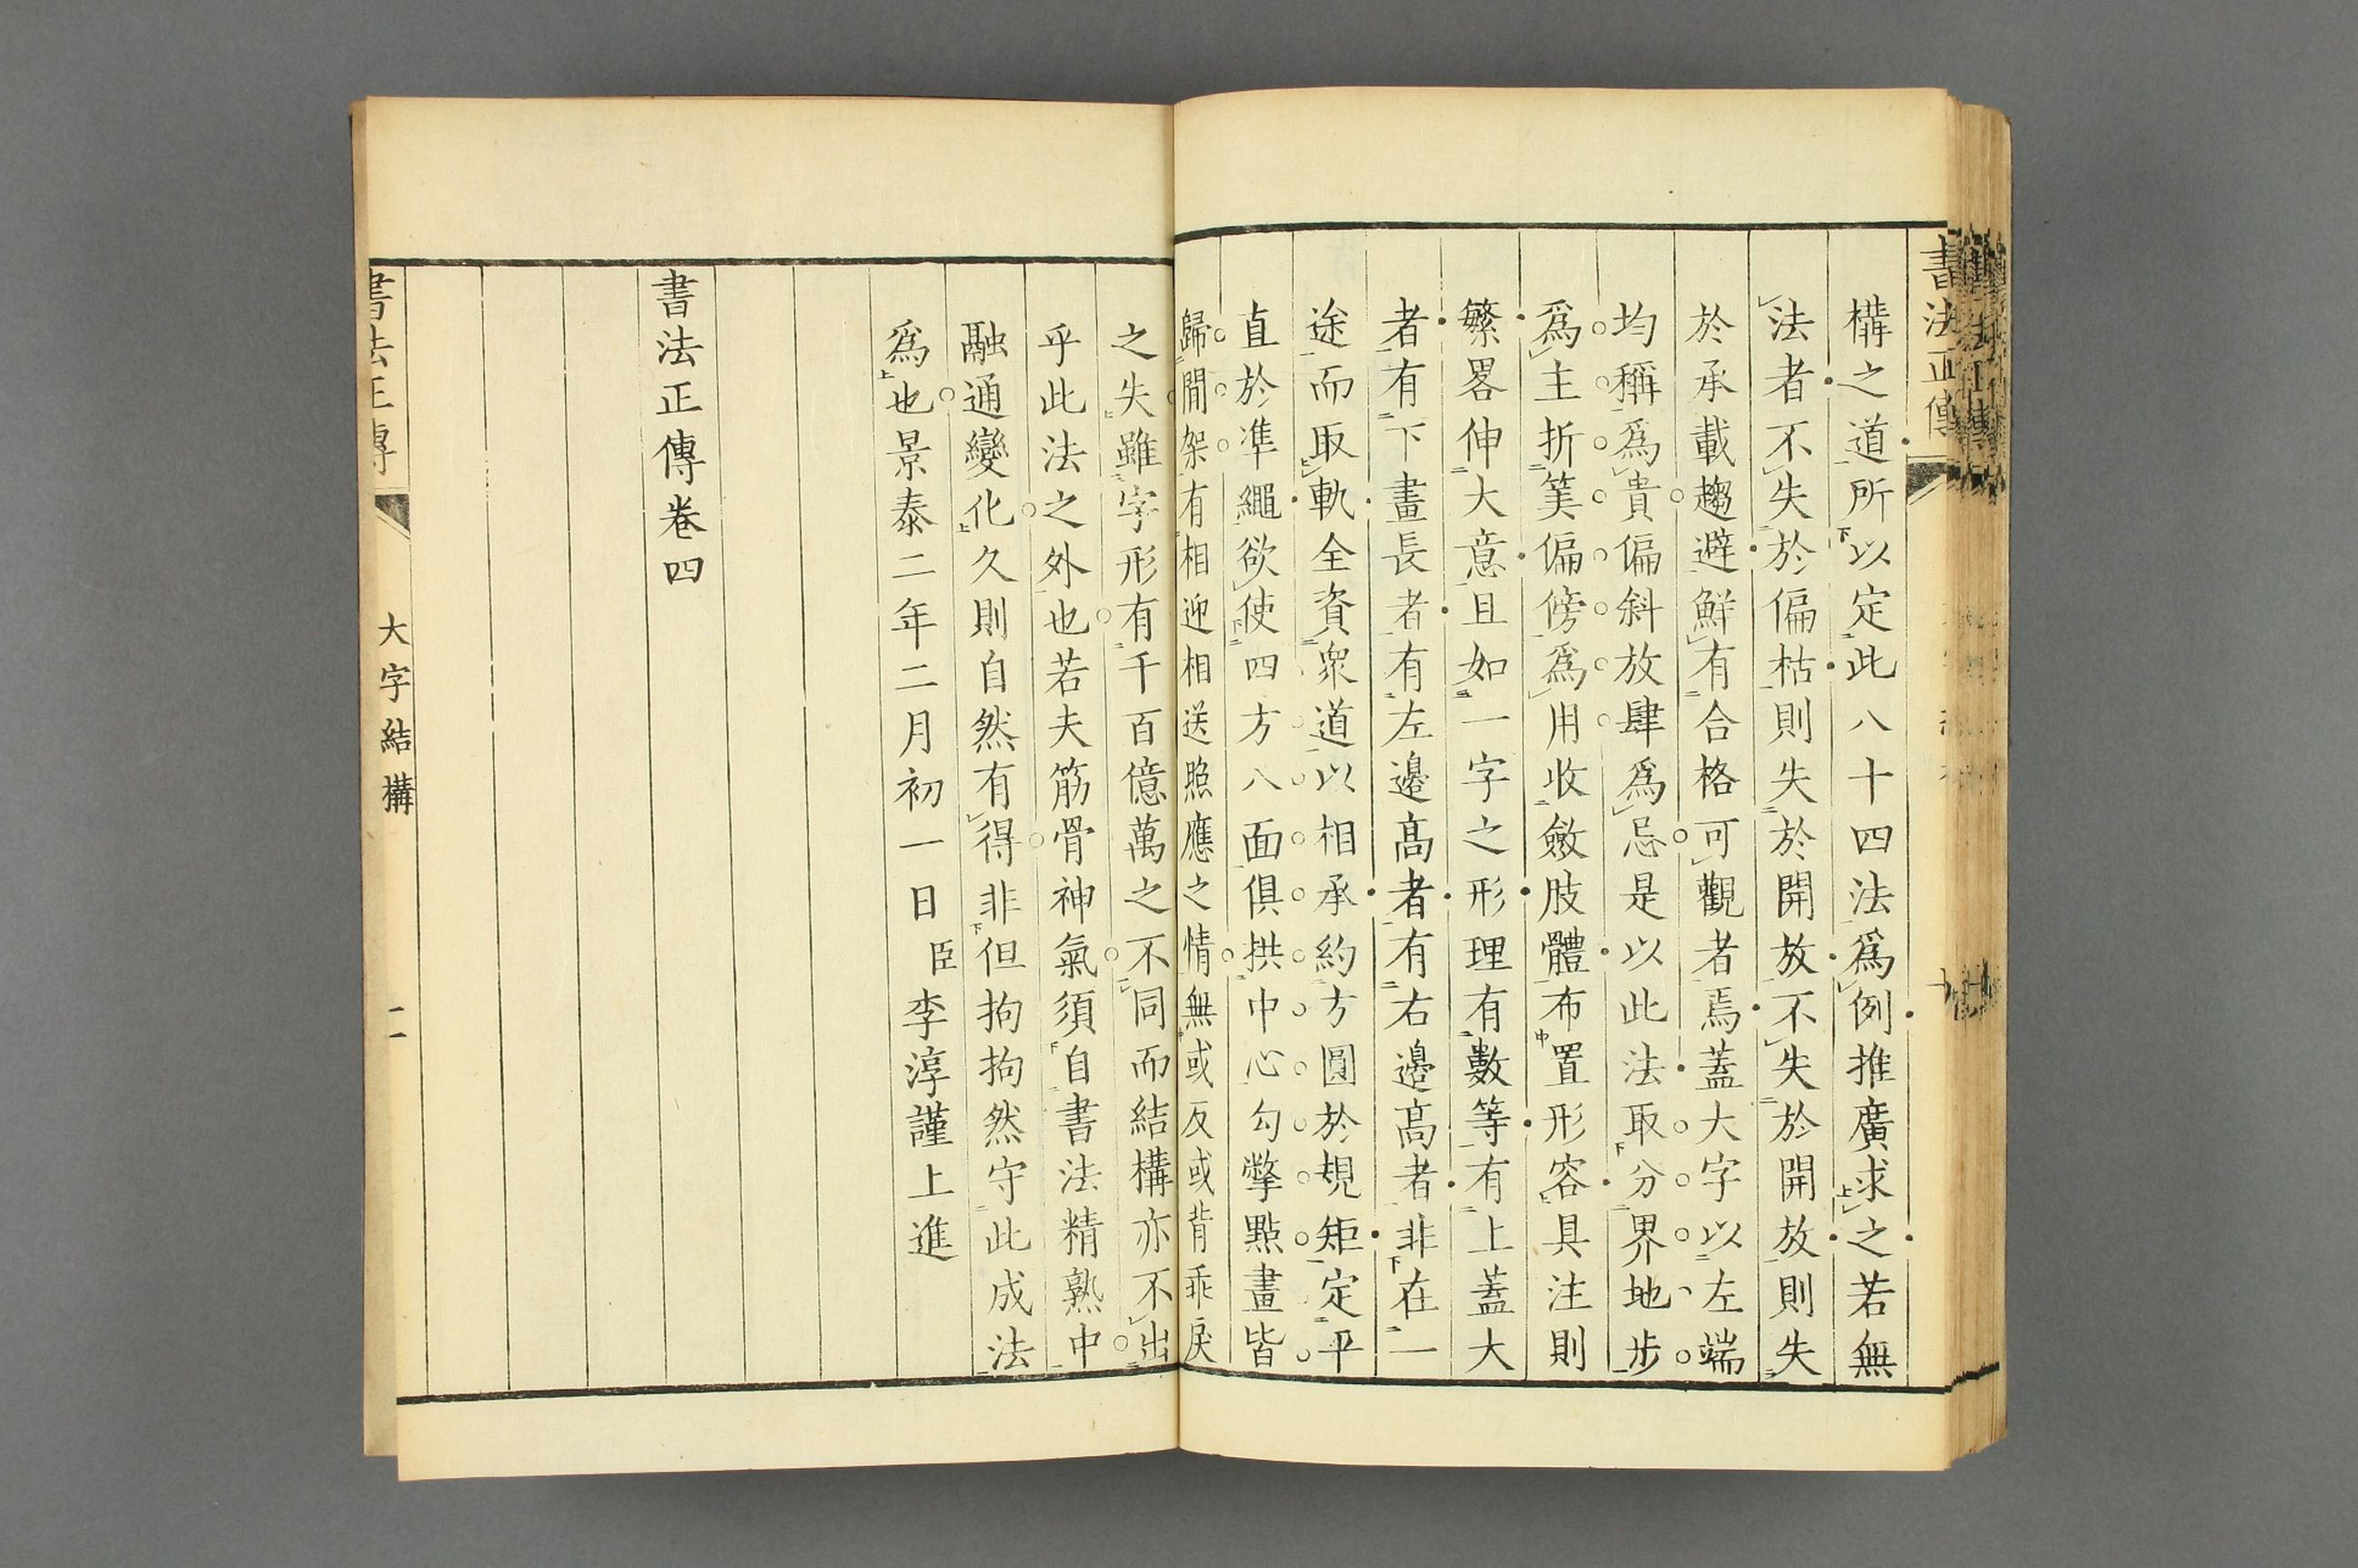 書法正傳
構之道所以定此八十四法爲例推廣求之若無
法者不失於偏枯則失於開放不失於開放則失
於承載趨避鮮有合格可觀者焉蓋大字以左端
均稱爲貴偏斜放肆爲忌是以此法取分界地步
爲主折筭偏傍爲用收斂肢體布置形容具注則
繁畧伸大意且如一字之形理有數等有上蓋大
者有下畫長者有左邊高者有右邊高者非在一
途而取軌全資衆道以相承約方圓於規矩定平
直於準繩欲使四方八面俱拱中心勾撆點畫皆
歸間架有相迎相送照應之情無或反或背乖戾
之失雖字形有千百億萬之不同而結構亦不出
乎此法之外也若夫筋骨神氣須自書法精熟中
融通變化久則自然有得非但拘拘然守此成法
爲也景泰二年二月初一日臣李淳謹上進
書法正傳卷四
書法正傳
大字結構